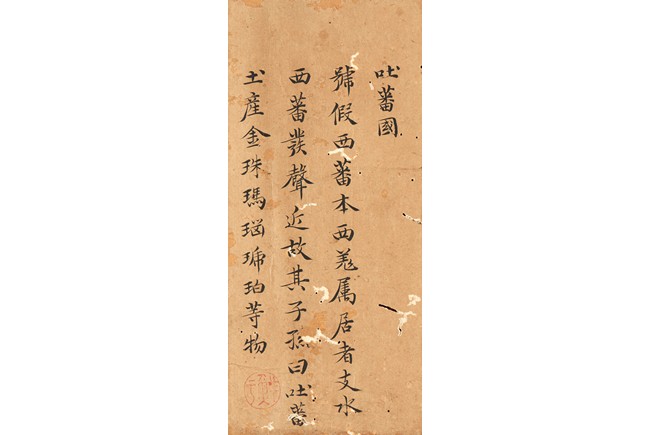 吐蕃國
號假西蕃本西羗属居者支水
西蕃發聲近故其子孫曰吐蕃
土産金珠瑪瑙琥珀等物